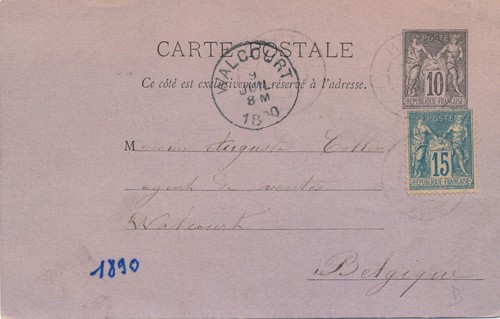 CARTE POSTALE
Ce côté est exclusivement réservé à l'adresse.
WALCOURT
9
JUIL
8 M
1890
POSTE
10
REPUBLIQUE FRANCAISE
POSTE
15
REPUBLIQUE FRANCAISE
Monsieur Auguste
agent de ventes
Walcourt
Belgique
1890